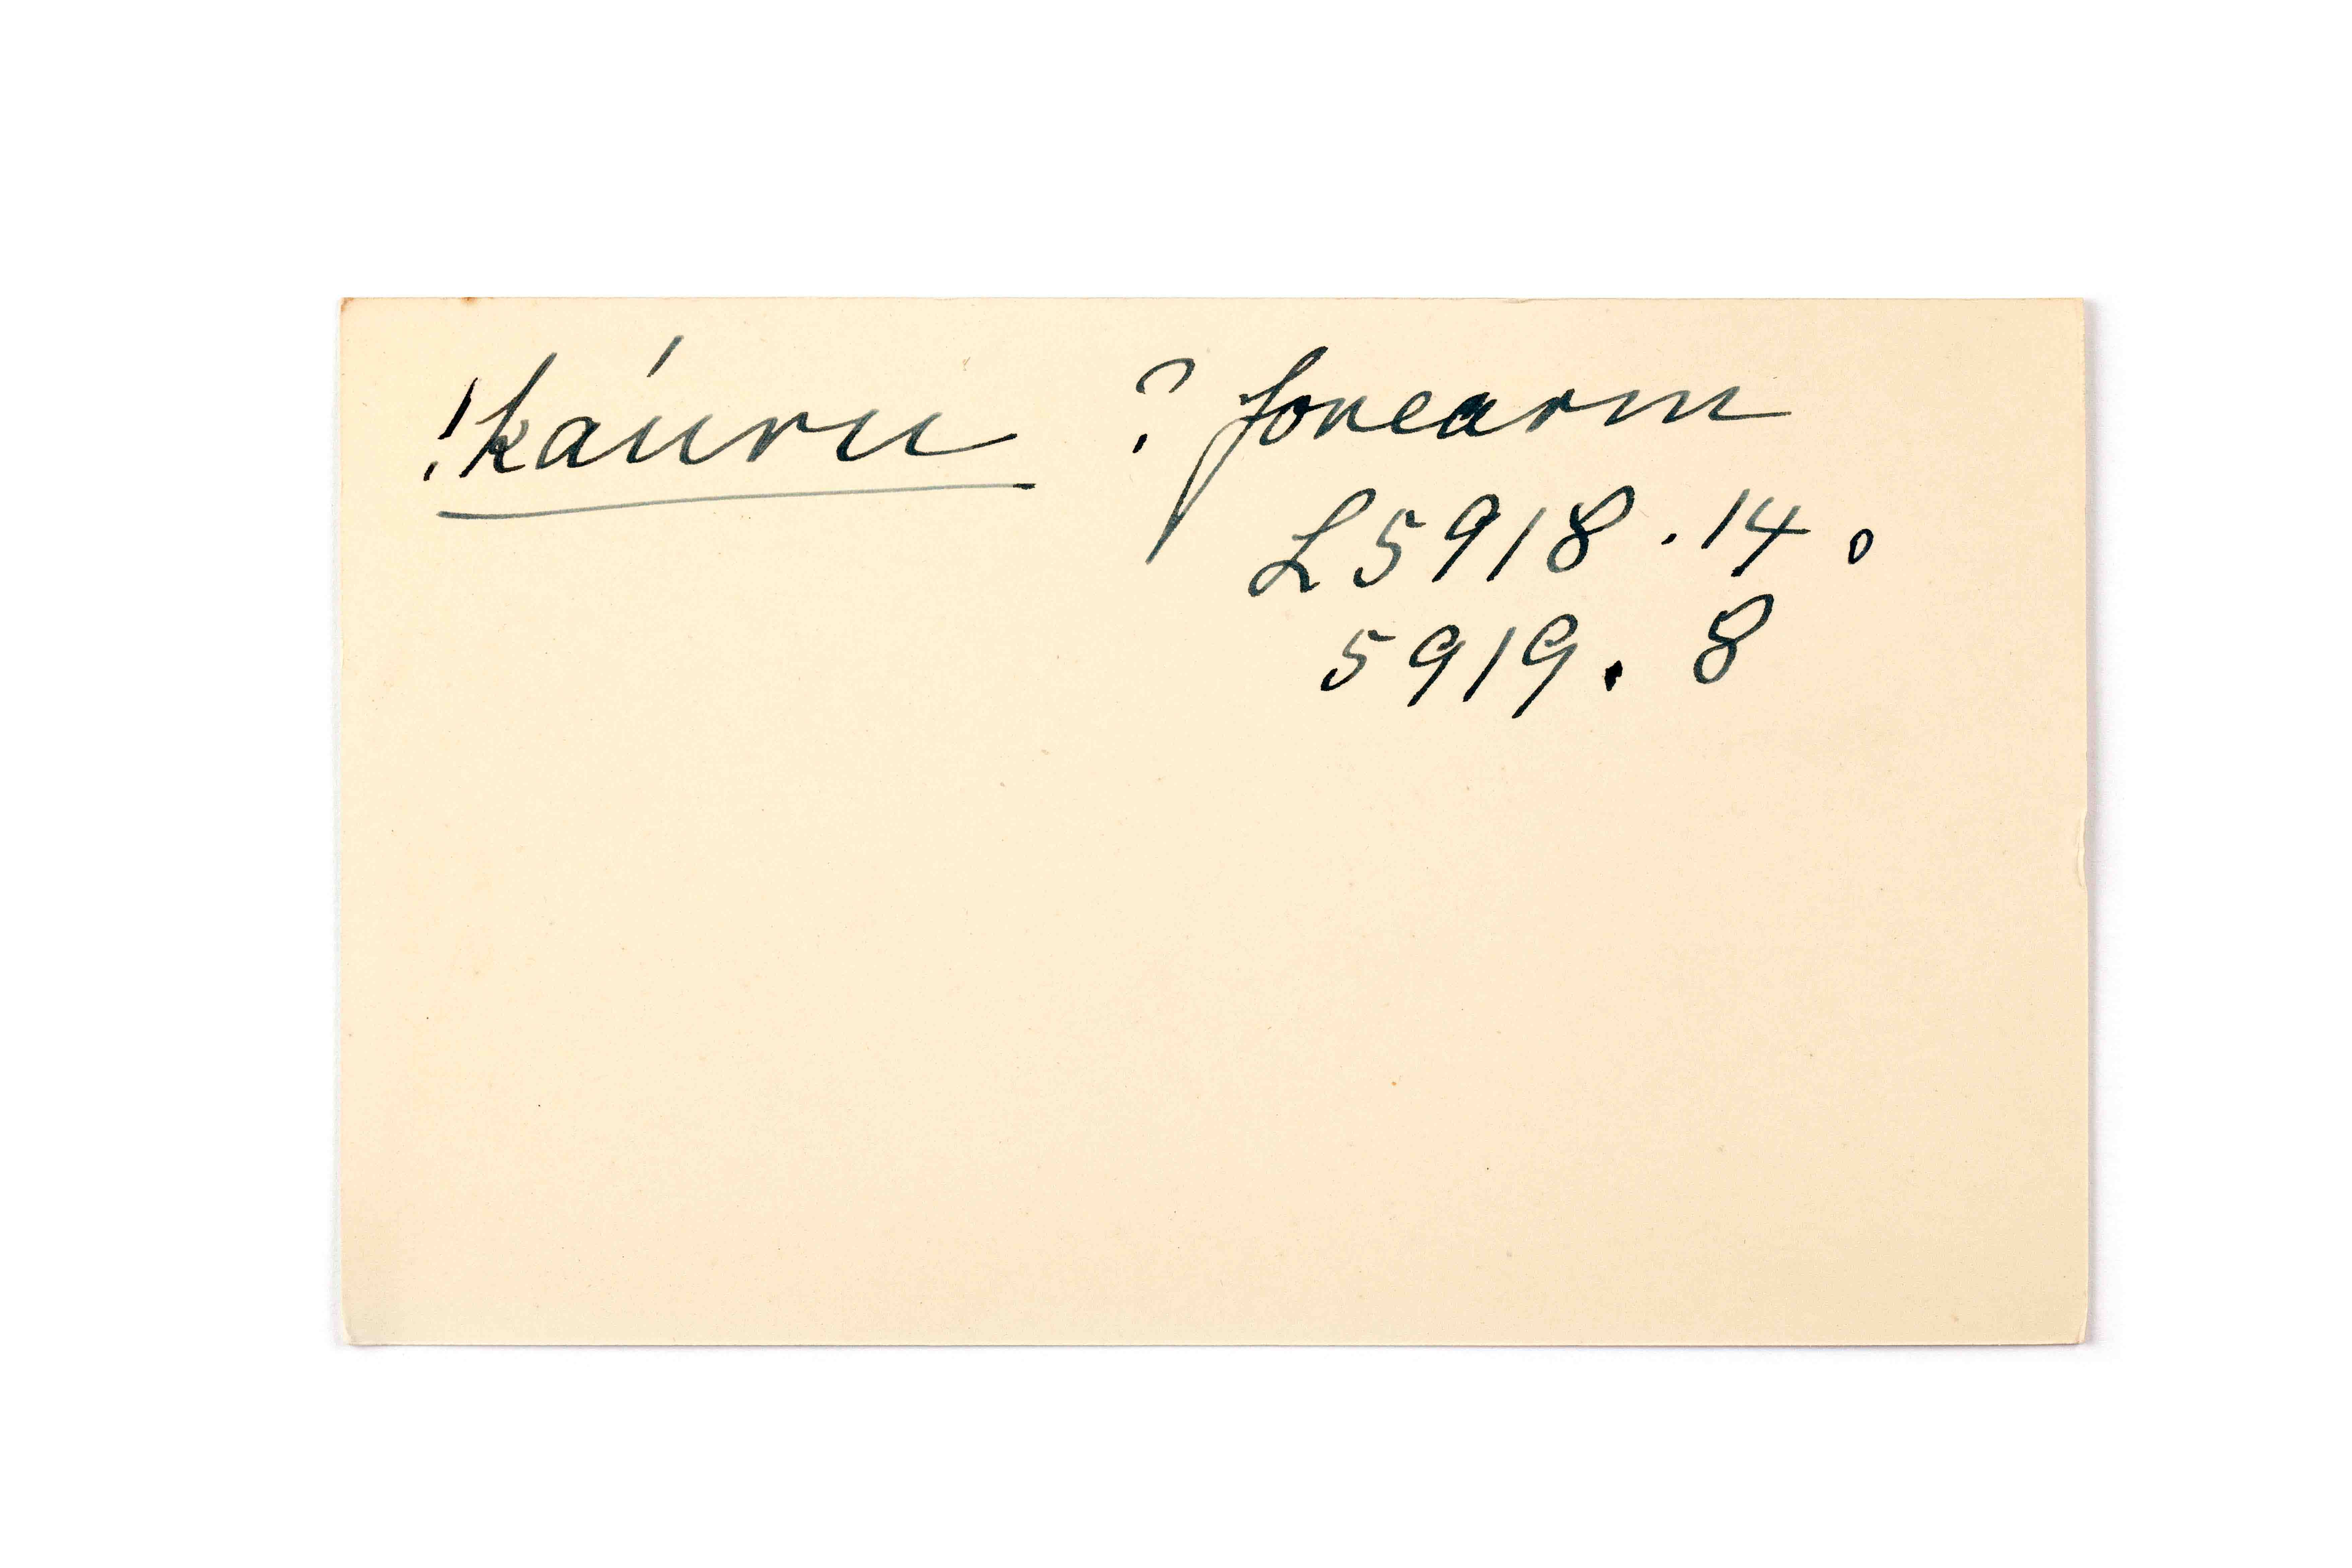 !káuru ? forearm
L5918.14.
5919.8